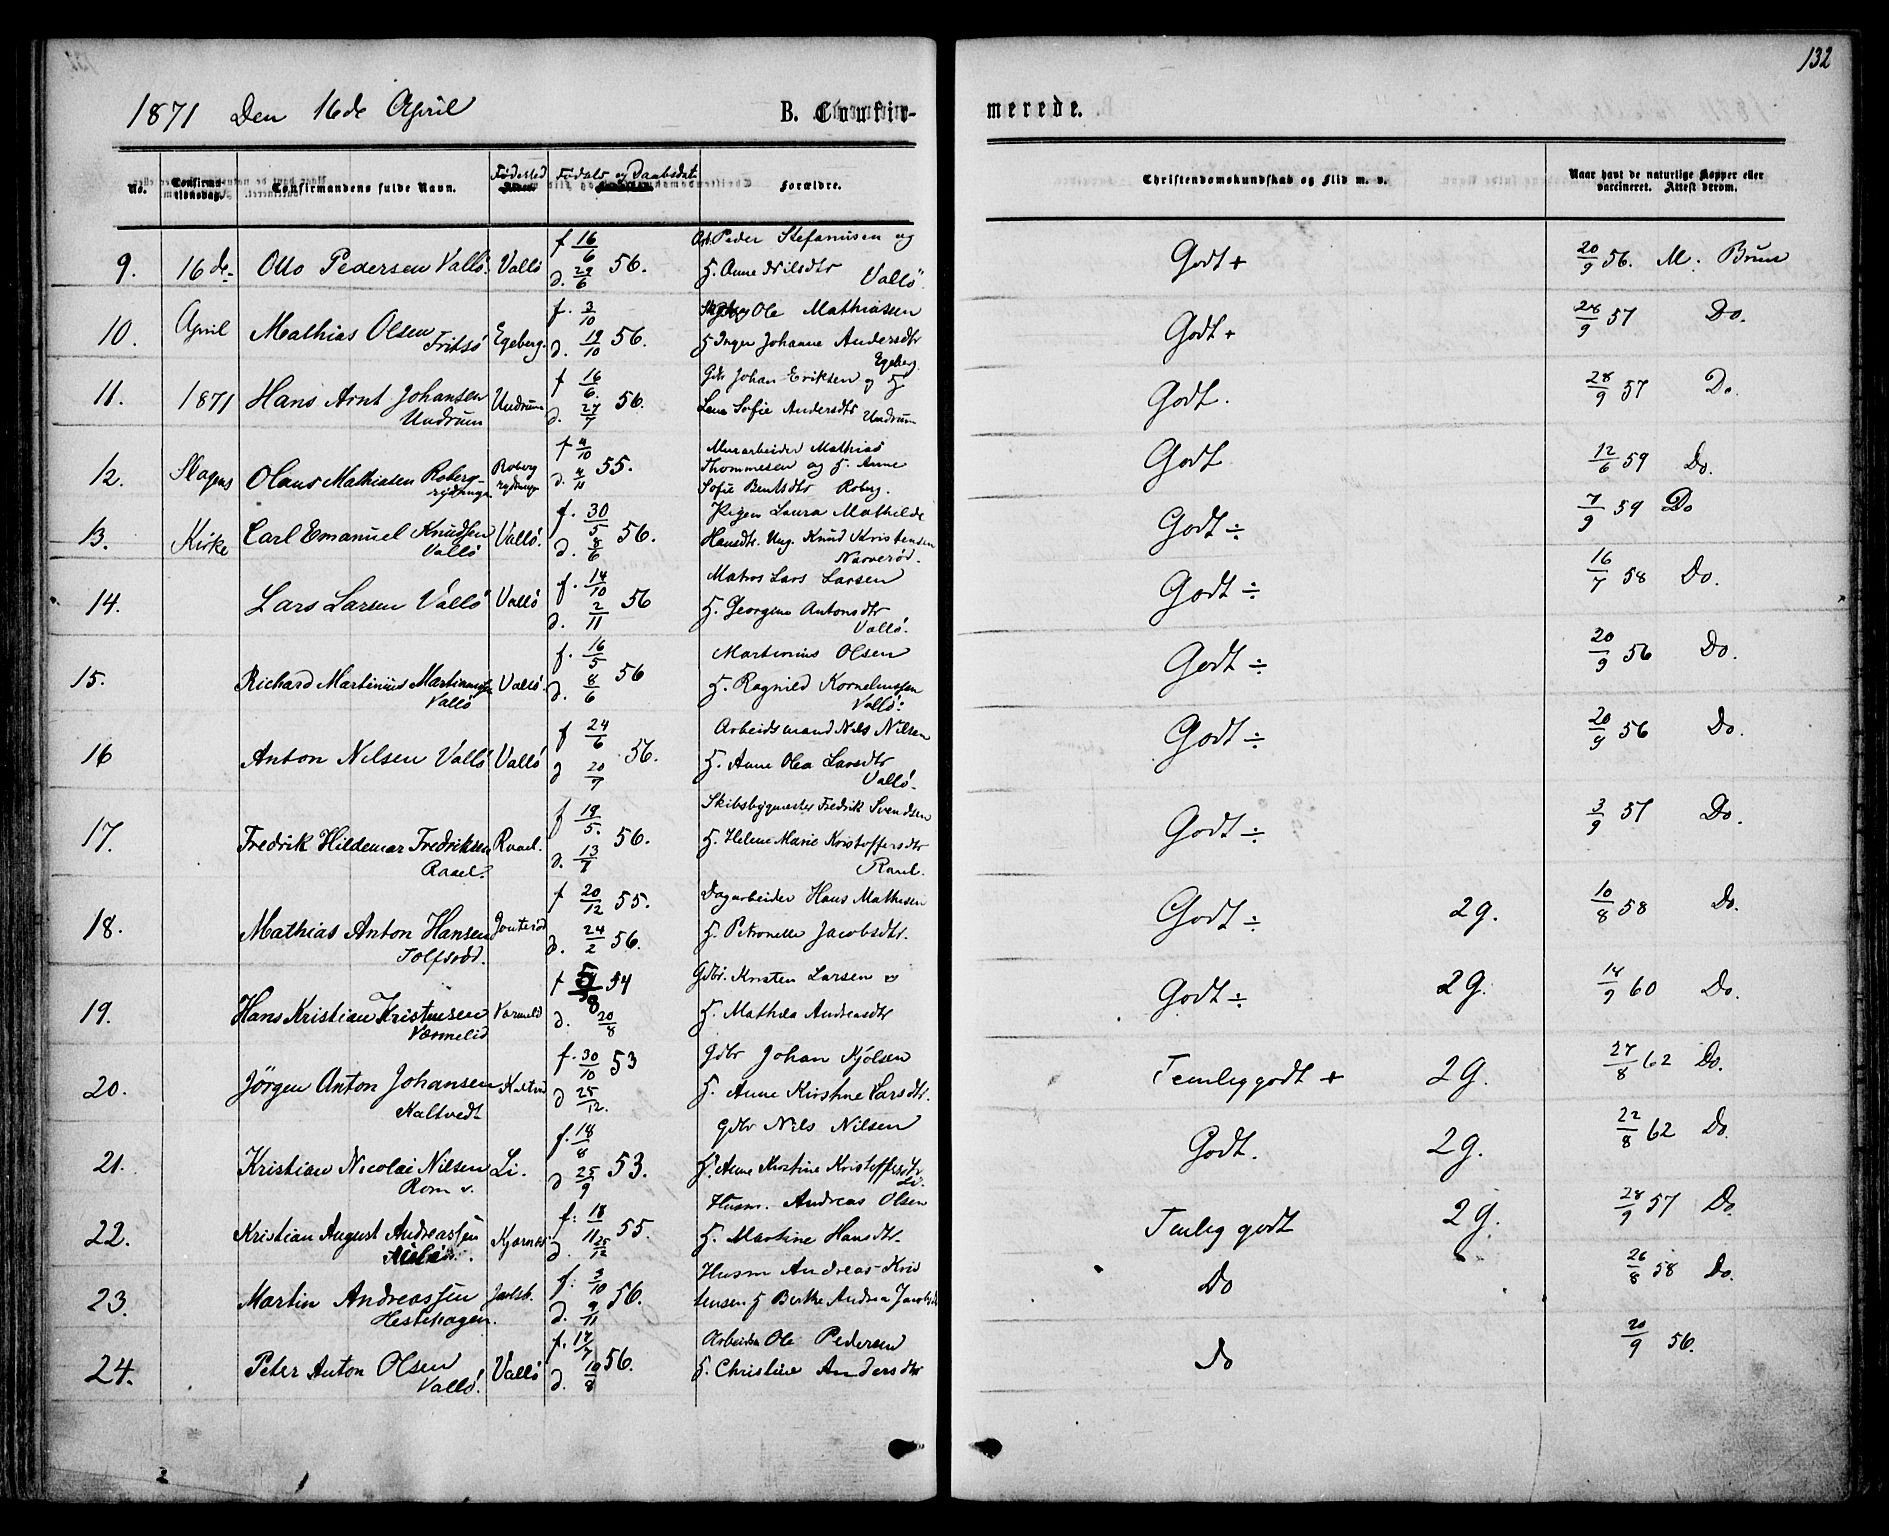 132
1871 Den 16de April B. Confirmerede.
No. Confirmationsdag. Confirmandens fulde Navn. Fødested Fødsels og Daabsdat Forældre. Christendomskundskab og Flid m. v. Naar havt de naturlige Kopper eller vaccineret. Attest derom.
9. 16de Otto Pedersen Vallö. Vallö f 16/6 d. 29/6 56. Arb. Peder Stefanusen og
H. Anne Nilsdtr Vallö Godt + 20/9 56. M. Bruus
10. April Mathias Olsen Fritsö Egeberg. f. 3/10 d. 19/10 56. Ole Mathiassen
H Inger Johanne Andersdtr Egeberg. Godt + 28/9 57 Do.
11. 1871 Hans Arnt Johansen Undrum Undrum f 16/6. d. 27/7 56. Gdb Johan Eriksen og H.
Lena Sofie Andersdtr Undrum Godt. 28/9 57 Do.
12. Slagens Olaus Mathiasen Roberg-rydninge Roberg rydninge f 4/10 d. 4/11 55. Murarbeider Mathias
Thommesen og H. Anne
Sofie Bentsdtr Roberg. Godt 12/6 59 Do.
13. Kirke Carl Emanuel Knudsen Vallö Vallö. f. 30/5 d. 8/6 56. Pigen Laura Mathilde
Hansdtr. Ung. Knud Kristensen
Narverød. Godt ÷ 7/9 59 Do
14. Lars Larsen Vallö Vallö f. 14/10 d. 2/11 56 Matros Lars Larsen
H. Georgine Antonsdtr
Vallö. Godt ÷ 16/7 58 Do.
15. Richard Martinius Martinussen Vallö Vallö. f. 16/5 d. 8/6 56 Martinius Olsen
H. Ragnild Kornelinssen
Vallö: Godt ÷ 20/9 56 Do.
16 Anton Nilsen Vallö Vallö f 24/6 d 20/7 56. Arbeidsmand Nils Nilsen
H. Anne Olea Larsdtr
Vallö. Godt ÷ 20/9 56 Do.
17. Fredrik Hildemar Fredriksen Raael. Raael. f 19/5. d. 13/7 56. Skibsbygmester Fredrik Svendsen
H. Helene Marie Kristoffersdtr
Raael. Godt ÷ 3/9 57 Do.
18. Mathias Anton Hansen Tolfsrød. Jonterød f 20/12 55. d. 24/2 56. Dagarbeider Hans Mathisen
H. Petronelle Jacobsdtr. Godt ÷ 2g. 10/8 58 Do.
19. Hans Kristian Kristensen Værmelid Værmelid f 5/8 54 d. 20/8 Gdbr. Kristen Larsen og
H. Mathea Andreasdtr Godt ÷ 2g. 14/9 60 Do.
20. Jörgen Anton Johansen Kaltvedt Kaltved f. 30/10 53 d 25/12. Gdbr Johan Kjölsen
H. Anne Kirstine Larsdtr. Temlig godt + 2g. 27/8 62 Do.
21. Kristian Nicolai Nilsen Rom v. Li. f. 18/8 d 25/9 53. Gdbr Nils Nilsen
H. Anne Kirstine Kristoffersdtr
Li. Godt. 2g. 22/8 62 Do.
22. Kristian August Andreassen Kjærnes f: 18/11 d. 25/12 55. Husm. Andreas Olsen
H. Martine Hansdtr. Temlig godt 2g. 28/9 57 Do.
23. Martin Andreassen Hestehagen. Jarlsb. f: 3/10 d. 9/11 56. Husm Andreas Kris
tensen H Berthe Andrea Jacobsd Do 26/8 58 Do.
24. Peter Anton Olsen Vallö. Vallö f. 17/7 d. 10/8 56. Arbeider Ole Pedersen
H. Christine Andersdtr Do 20/9 56.